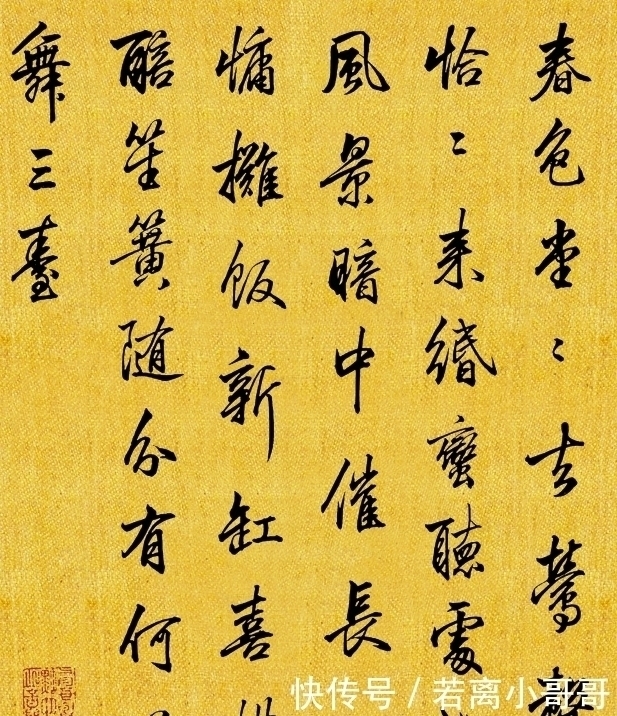 春色堂〻去鶯
恰〻来緡蠻聽處
風景暗中催長
慵攤飯新缸喜
醅笙簧随分有何
舞三臺
快传号 / 若离小哥哥